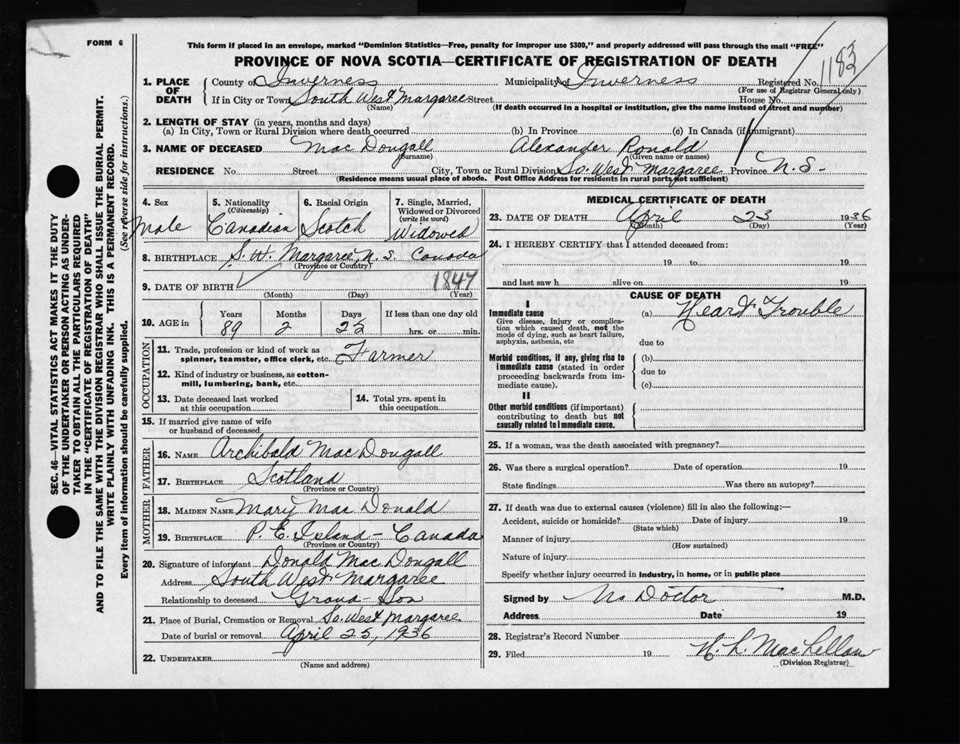 FORM 6
This form if placed in an envelope, marked "Dominion Statistics—Free, penalty for improper use $300," and properly addressed will pass through the mail "FREE"
PROVINCE OF NOVA SCOTIA—CERTIFICATE OF REGISTRATION OF DEATH
1183
1. PLACE OF DEATH County of Inverness Municipality Inverness Registered No.
(For use of Registrar General only)
If in City or Town South West Margaree Street House No.
(Name) (If death occurred in a hospital or institution, give the name instead of street and number)
2. LENGTH OF STAY (in years, months and days)
(a) In City, Town or Rural Division where death occurred (b) In Province (c) In Canada (if immigrant)
3. NAME OF DECEASED Mac Dougall Alexander Ronald
(Surname) (Given name or names)
RESIDENCE No. Street City, Town or Rural Division So. West Margaree Province N.S.
(Residence means usual place of abode. Post Office Address for residents in rural parts not sufficient)
4. Sex
Male
5. Nationality
(Citizenship)
Canadian
6. Racial Origin
Scotch
7. Single, Married,
Widowed or Divorced
(write the word)
Widowed
8. BIRTHPLACE S. W. Margaree, N. S. Canada
(Province or Country)
9. DATE OF BIRTH 1847
(Month) (Day) (Year)
10. AGE in Years Months Days If less than one day old
89 2 hrs. or min.
OCCUPATION
11. Trade, profession or kind of work as
spinner, teamster, office clerk, etc. Farmer
12. Kind of industry or business, as cotton-
mill, lumbering, bank, etc.
13. Date deceased last worked
at this occupation
14. Total yrs. spent in
this occupation
15. If married give name of wife
or husband of deceased
FATHER
16. NAME Archibald Mac Dougall
17. BIRTHPLACE Scotland
(Province or Country)
MOTHER
18. MAIDEN NAME Mary Mac Donald
19. BIRTHPLACE P. E. Island - Canada
(Province or Country)
20. Signature of informant Donald Mac Dougall
Address South West Margaree
Relationship to deceased Grand - Son
21. Place of Burial, Cremation or Removal So. West Margaree
Date of burial or removal April 25, 1936
22. UNDERTAKER
(Name and address)
MEDICAL CERTIFICATE OF DEATH
23. DATE OF DEATH April 23 1936
(Month) (Day) (Year)
24. I HEREBY CERTIFY that I attended deceased from:
19 to 19
and last saw h alive on 19
CAUSE OF DEATH
I
Immediate cause (a) Heart Trouble
Give disease, injury or complica-
tion, which caused death, not the
mode of dying, such as heart failure,
asphyxia, asthenia, etc
due to
Morbid conditions, if any, giving rise to
immediate cause (stated in order
proceeding backwards from im-
mediate cause).
(b)
due to
(c)
II
Other morbid conditions (if important)
contributing to death but not
causally related to immediate cause.
25. If a woman, was the death associated with pregnancy?
26. Was there a surgical operation? Date of operation 19
State findings Was there an autopsy?
27. If death was due to external causes (violence) fill in also the following:—
Accident, suicide or homicide? Date of injury 19
(State which)
Manner of injury
(How sustained)
Nature of injury
Specify whether injury occurred in industry, in home, or in public place
Signed by No Doctor M.D.
Address Date 19
28. Registrar's Record Number
29. Filed 19 MacLellan
(Division Registrar)
SEC. 46—VITAL STATISTICS ACT MAKES IT THE DUTY
OF THE UNDERTAKER OR PERSON ACTING AS UNDER-
TAKER TO OBTAIN ALL THE PARTICULARS REQUIRED
IN THE "CERTIFICATE OF REGISTRATION OF DEATH"
AND TO FILE THE SAME WITH THE DIVISION REGISTRAR WHO SHALL ISSUE THE BURIAL PERMIT.
WRITE PLAINLY WITH UNFADING INK. THIS IS A PERMANENT RECORD.
Every item of information should be carefully supplied. (See reverse side for instructions.)